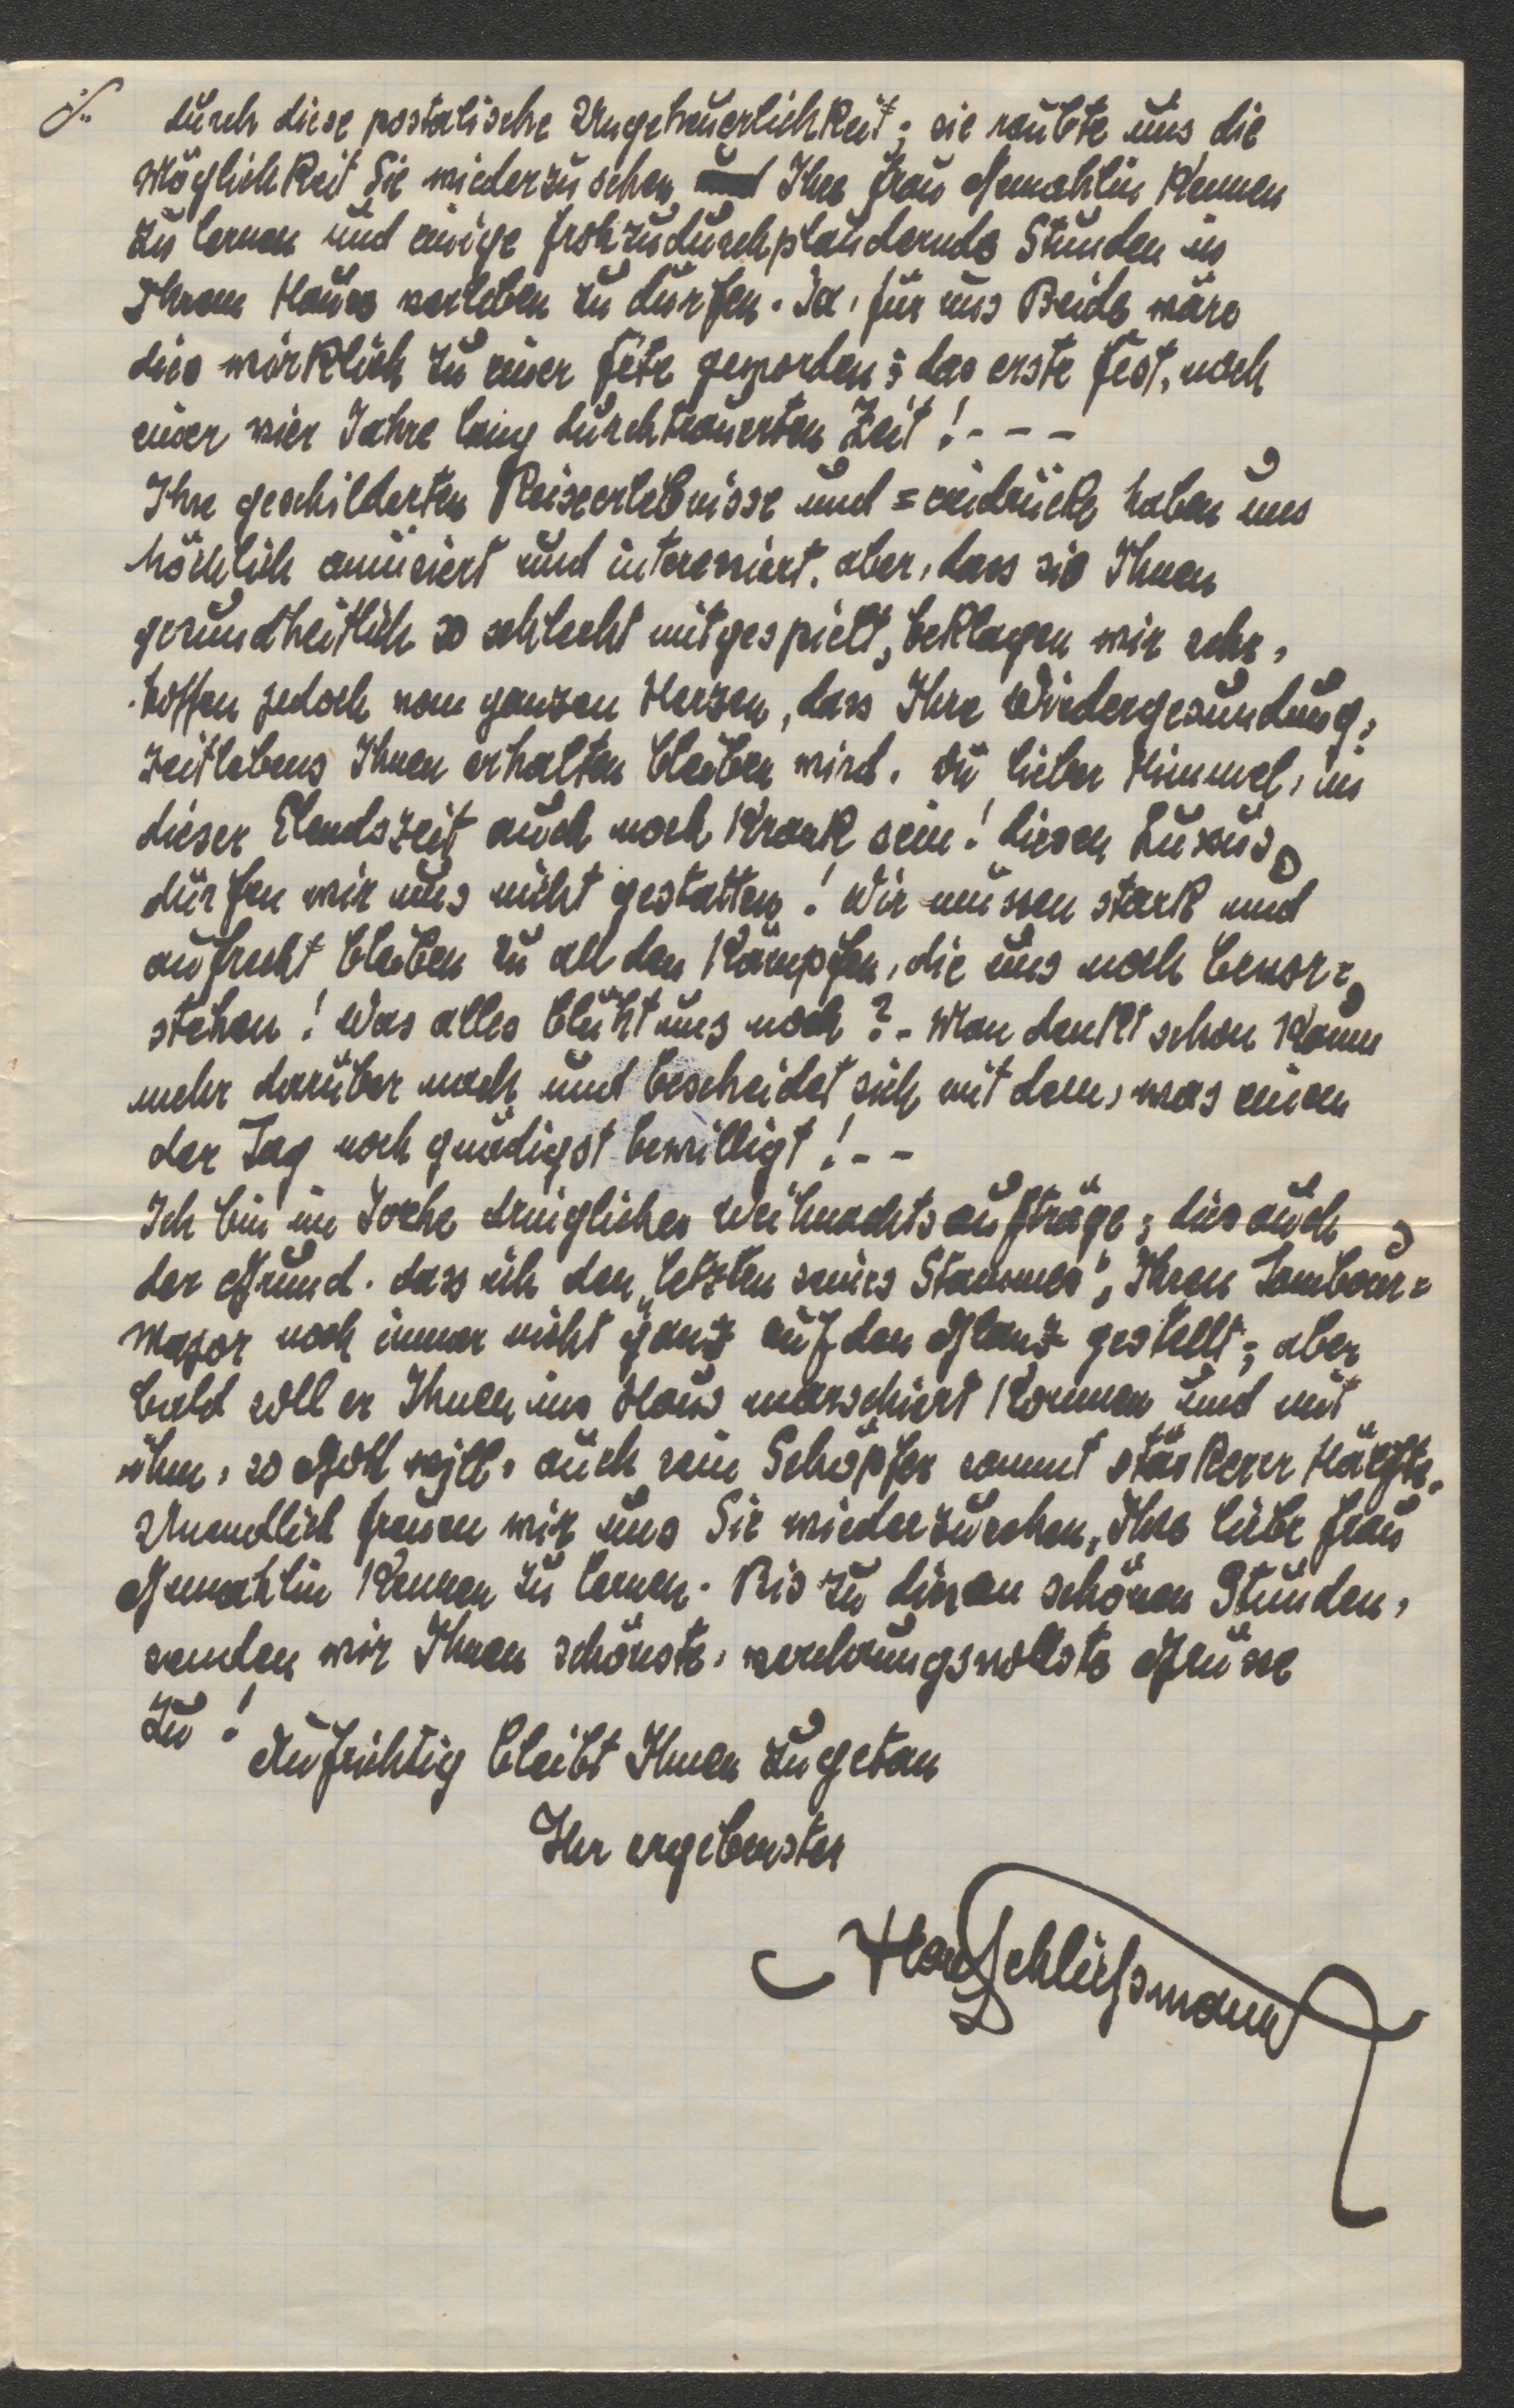 durch diese postalische Ungeheuerlichkeit; sie raubte uns die
Möglichkeit Sie wiederzusehen, Ihre Frau Gemahlin kennen
zu lernen und einige froh zu durchplaudernde Stunden in
Ihrem Hause verleben zu dürfen. Ja, für uns Beide wäre
dies wirklich zu einer Fête geworden; das erste Fest, nach
einer vier Jahre lang durchtrauerten Zeit! - - -
Ihre geschilderten Reiseerlebnisse und =eindrücke haben uns
höchlich amüsiert und interessiert, aber, dass sie Ihnen
gesundheitlich so schlecht mitgespielt, beklagen wir sehr,
hoffen jedoch vom ganzen Herzen, dass Ihre Wiedergesundung,
zeitlebens Ihnen erhalten bleiben wird. Du lieber Himmel, in
dieser Elendszeit auch noch krank sein! Diesen Luxus,
dürfen wir uns nicht gestatten! Wir müssen stark und
aufrecht bleiben zu all den Kämpfen, die uns noch bevor=
stehen! Was alles blüht uns noch? - Man denkt schon kaum
mehr darüber nach und bescheidet sich mit dem, was einem
der Tag noch gnädigst bewilligt! - -
Ich bin im Joche dringlicher Weihnachtsaufträge; dies auch
der Grund, dass ich den „letzten seines Stammes", Ihren Tambour=
major noch immer nicht ganz auf den Glanz gestellt; aber
bald soll er Ihnen ins Haus marschiert kommen und mit
ihm, so Gott will, auch sein Schöpfer sammt stärkerer Hälfte.
Unendlich freuen wir uns Sie wiederzusehen, Ihre liebe Frau
Gemahlin kennen zu lernen. Bis zu diesen schönen Stunden,
senden wir Ihnen schönste, verehrungsvollste Grüsse
zu!
Aufrichtig bleibt Ihnen zugetan
Ihr ergebenster
Hans Schließmann